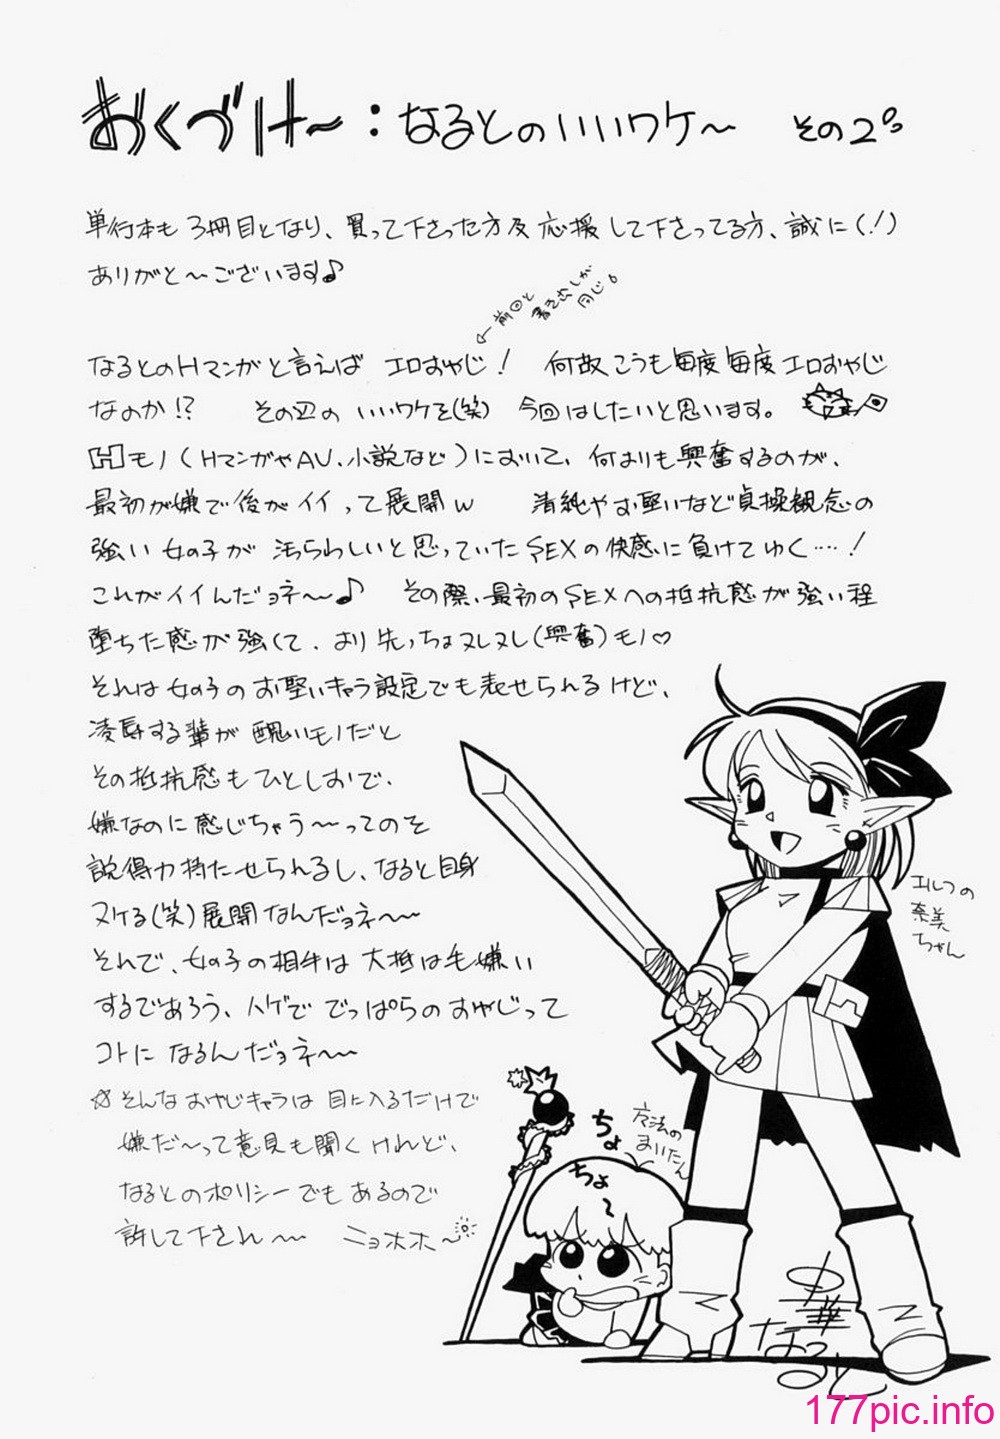 おくづけ〜：なるとのいいワケ〜　その2。
単行本も3冊目となり、買って下さった方及応援して下さってる方、誠に(!)
ありがと〜ございます♪
←前回と
書き出しが
同じ。
なるとのHマンガと言えば エロおやじ! 何故こうも毎度毎度エロおやじ
なのか!? その辺の いいワケを(笑) 今回はしたいと思います。
Hモノ(HマンガやAV、小説など)において、何よりも興奮するのが、
最初が嫌で後がイイって展開w 清純やお堅いなど貞操観念の
強い女の子が 汚らわしいと思っていたSEXの快感に負けてゆく…!
これがイイんだョネ〜♪ その際、最初のSEXへの抵抗感が強い程
堕ちた感が強くて、より先っちょヌレヌレ(興奮)モノ♡
それは女の子のお堅いキャラ設定でも表せられるけど、
凌辱する輩が醜いモノだと
その抵抗感もひとしおで、
嫌なのに感じちゃう〜ってのを
説得力持たせられるし、なると自身
ヌケる(笑)展開なんだョネ〜〜
それで、女の子の相手は大抵は毛嫌い
するであろう、ハゲで でっぱらのおやじって
コトに なるんだョネ〜〜
☆そんなおやじキャラは 目に入るだけで
嫌だ〜って意見も聞くけれど、
なるとのポリシーでもあるので
許して下され〜〜 ニョホホ〜
エルフの
奈美
ちゃん
魔法の
まいたん
ちょ
ちょ
〜
177pic.info